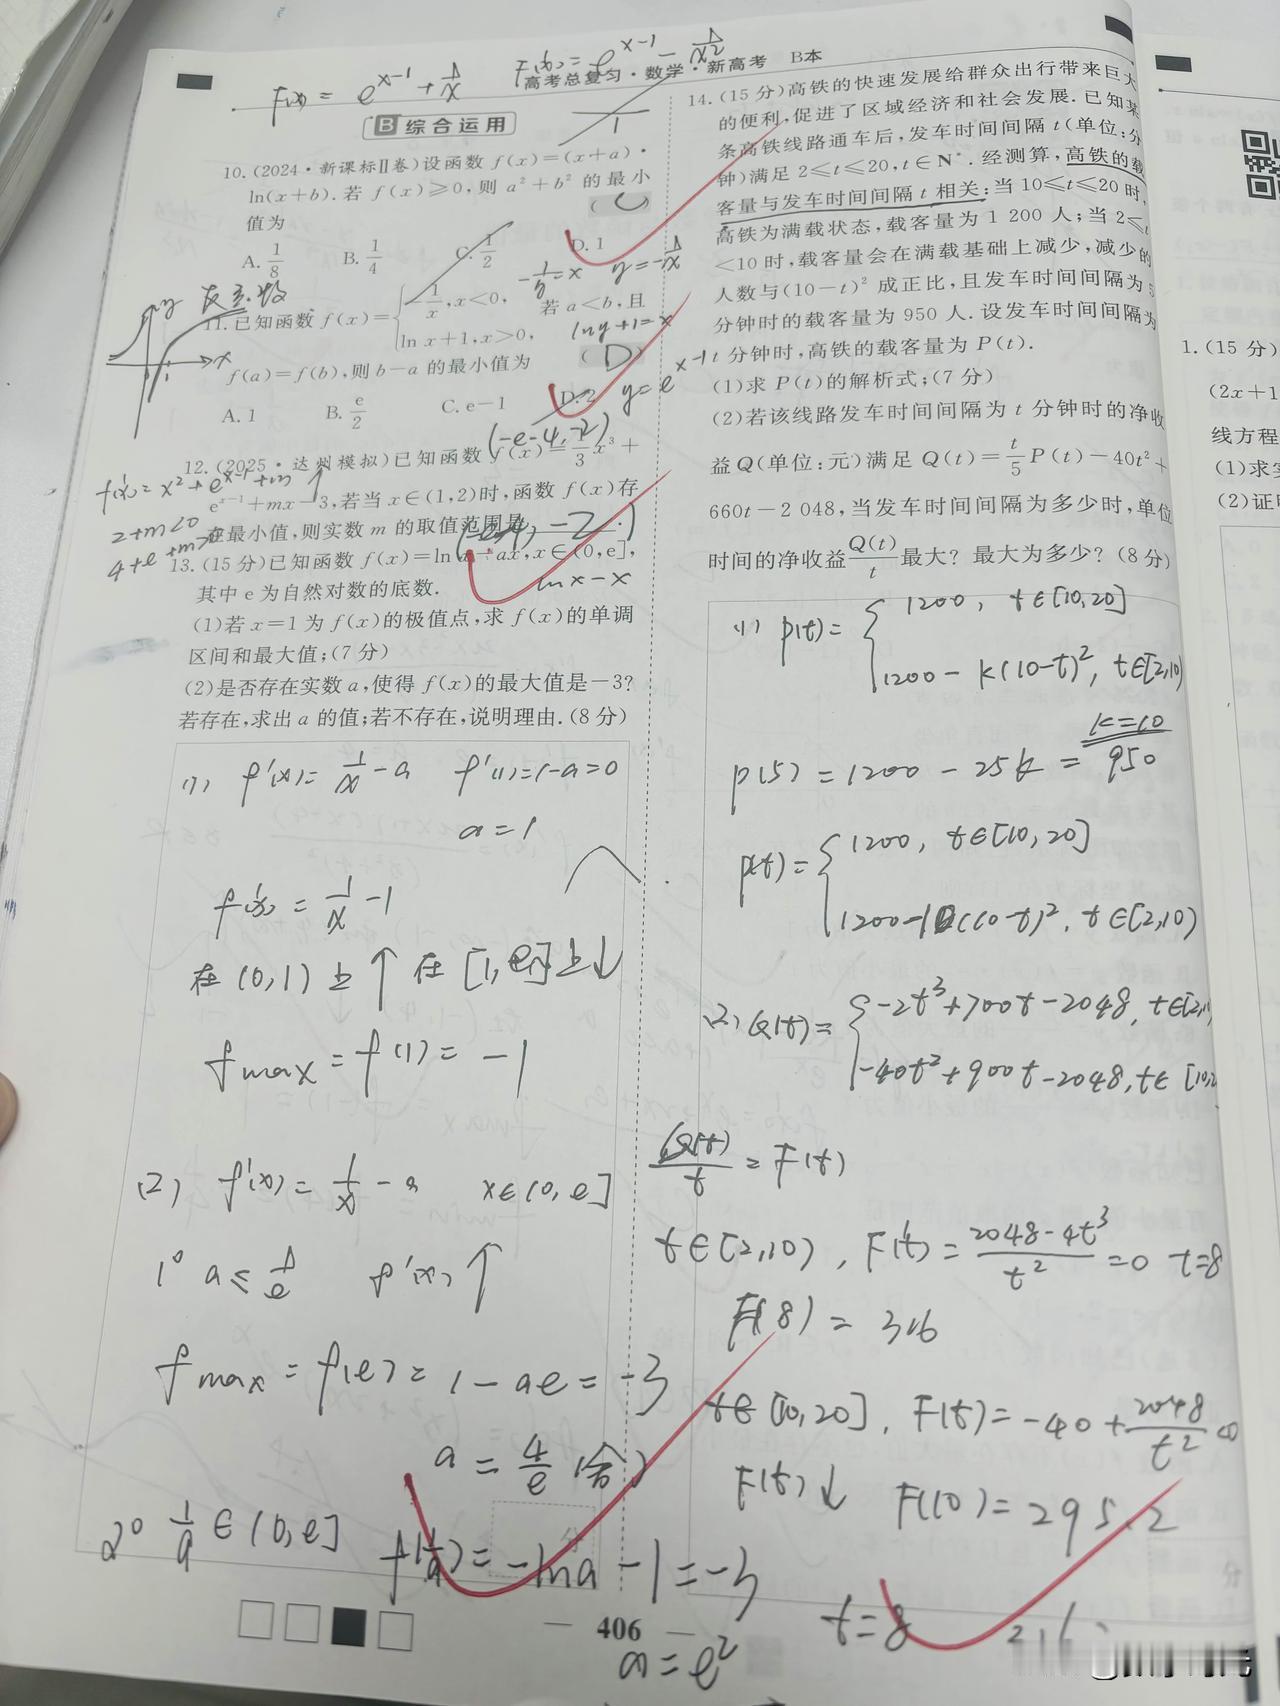 F(x) = e^{x-1} + 1/x
F'(x) = e^{x-1} - 1/x²
高考总复习·数学·新高考 B本
B 综合运用
10.(2024·新课标Ⅱ卷)设函数 f(x)=(x+a)·
ln(x+b). 若 f(x)≥0,则 a²+b² 的最小
值为 ( C )
A. 1/8 B. 1/4 C. 1/2 D. 1
-1/y = x y = -1/x
反函数
11. 已知函数 f(x)={ -1/x, x<0, 若 a<b,且
ln x+1, x>0,
lny+1=x
f(a)=f(b),则 b-a 的最小值为 ( D )
y=e^{x-1}
A. 1 B. e/2 C. e-1 D. 2
(-e-4,-2)
12.(2025·达州模拟)已知函数 f(x)=1/3 x³+
f'(x)= x²+e^{x-1}+m ↑
e^{x-1}+mx-3,若当 x∈(1,2)时,函数 f(x)存
2+m<0
在最小值,则实数 m 的取值范围是
4+e+m>0
13.(15分)已知函数 f(x)=ln x-ax, x∈(0,e],
lnx-x
其中 e 为自然对数的底数.
(1)若 x=1 为 f(x)的极值点,求 f(x)的单调
区间和最大值;(7分)
(2)是否存在实数 a,使得 f(x)的最大值是-3?
若存在,求出 a 的值;若不存在,说明理由.(8分)
(1) f'(x)= 1/x - a f'(1)=1-a=0
a=1
f'(x) = 1/x - 1
在(0,1)上↑ 在[1,e]上↓
fmax = f(1) = -1
(2) f'(x)= 1/x - a x∈(0,e]
1° a≤1/e f(x)↑
fmax = f(e) = 1-ae = -3
a = 4/e (舍)
2° 1/a ∈(0,e]
f(1/a) = -lna-1=-3
a=e²
406
14.(15分)高铁的快速发展给群众出行带来巨大
的便利,促进了区域经济和社会发展. 已知某
条高铁线路通车后,发车时间间隔 t(单位:分
钟)满足 2≤t≤20,t∈N*. 经测算,高铁的载
客量与发车时间间隔 t 相关:当 10≤t≤20 时,
高铁为满载状态,载客量为 1 200 人;当 2≤t
<10 时,载客量会在满载基础上减少,减少的
人数与(10-t)² 成正比,且发车时间间隔为 5
分钟时的载客量为 950 人. 设发车时间间隔为
t 分钟时,高铁的载客量为 P(t).
(1)求 P(t)的解析式;(7分)
(2)若该线路发车时间间隔为 t 分钟时的净收
益 Q(单位:元)满足 Q(t)=t/5 P(t)-40t²+
660t-2 048,当发车时间间隔为多少时,单位
时间的净收益 Q(t)/t 最大?最大为多少?(8分)
(1) p(t)= { 1200, t∈[10,20]
1200-k(10-t)², t∈[2,10)
k=10
p(5) = 1200-25k = 950
p(t)= { 1200, t∈[10,20]
1200-10(10-t)², t∈[2,10)
(2) Q(t)= { -2t³+700t-2048, t∈[2,10
-40t²+900t-2048, t∈[10,2
Q(t)/t = F(t)
t∈[2,10), F'(t)= (2048-4t³)/t² =0 t=8
F(8) = 316
t∈[10,20], F'(t)=-40+2048/t² <0
F(t)↓ F(10)=295.2
t=8
1.(15分)
(2x+1
线方程
(1)求
(2)证